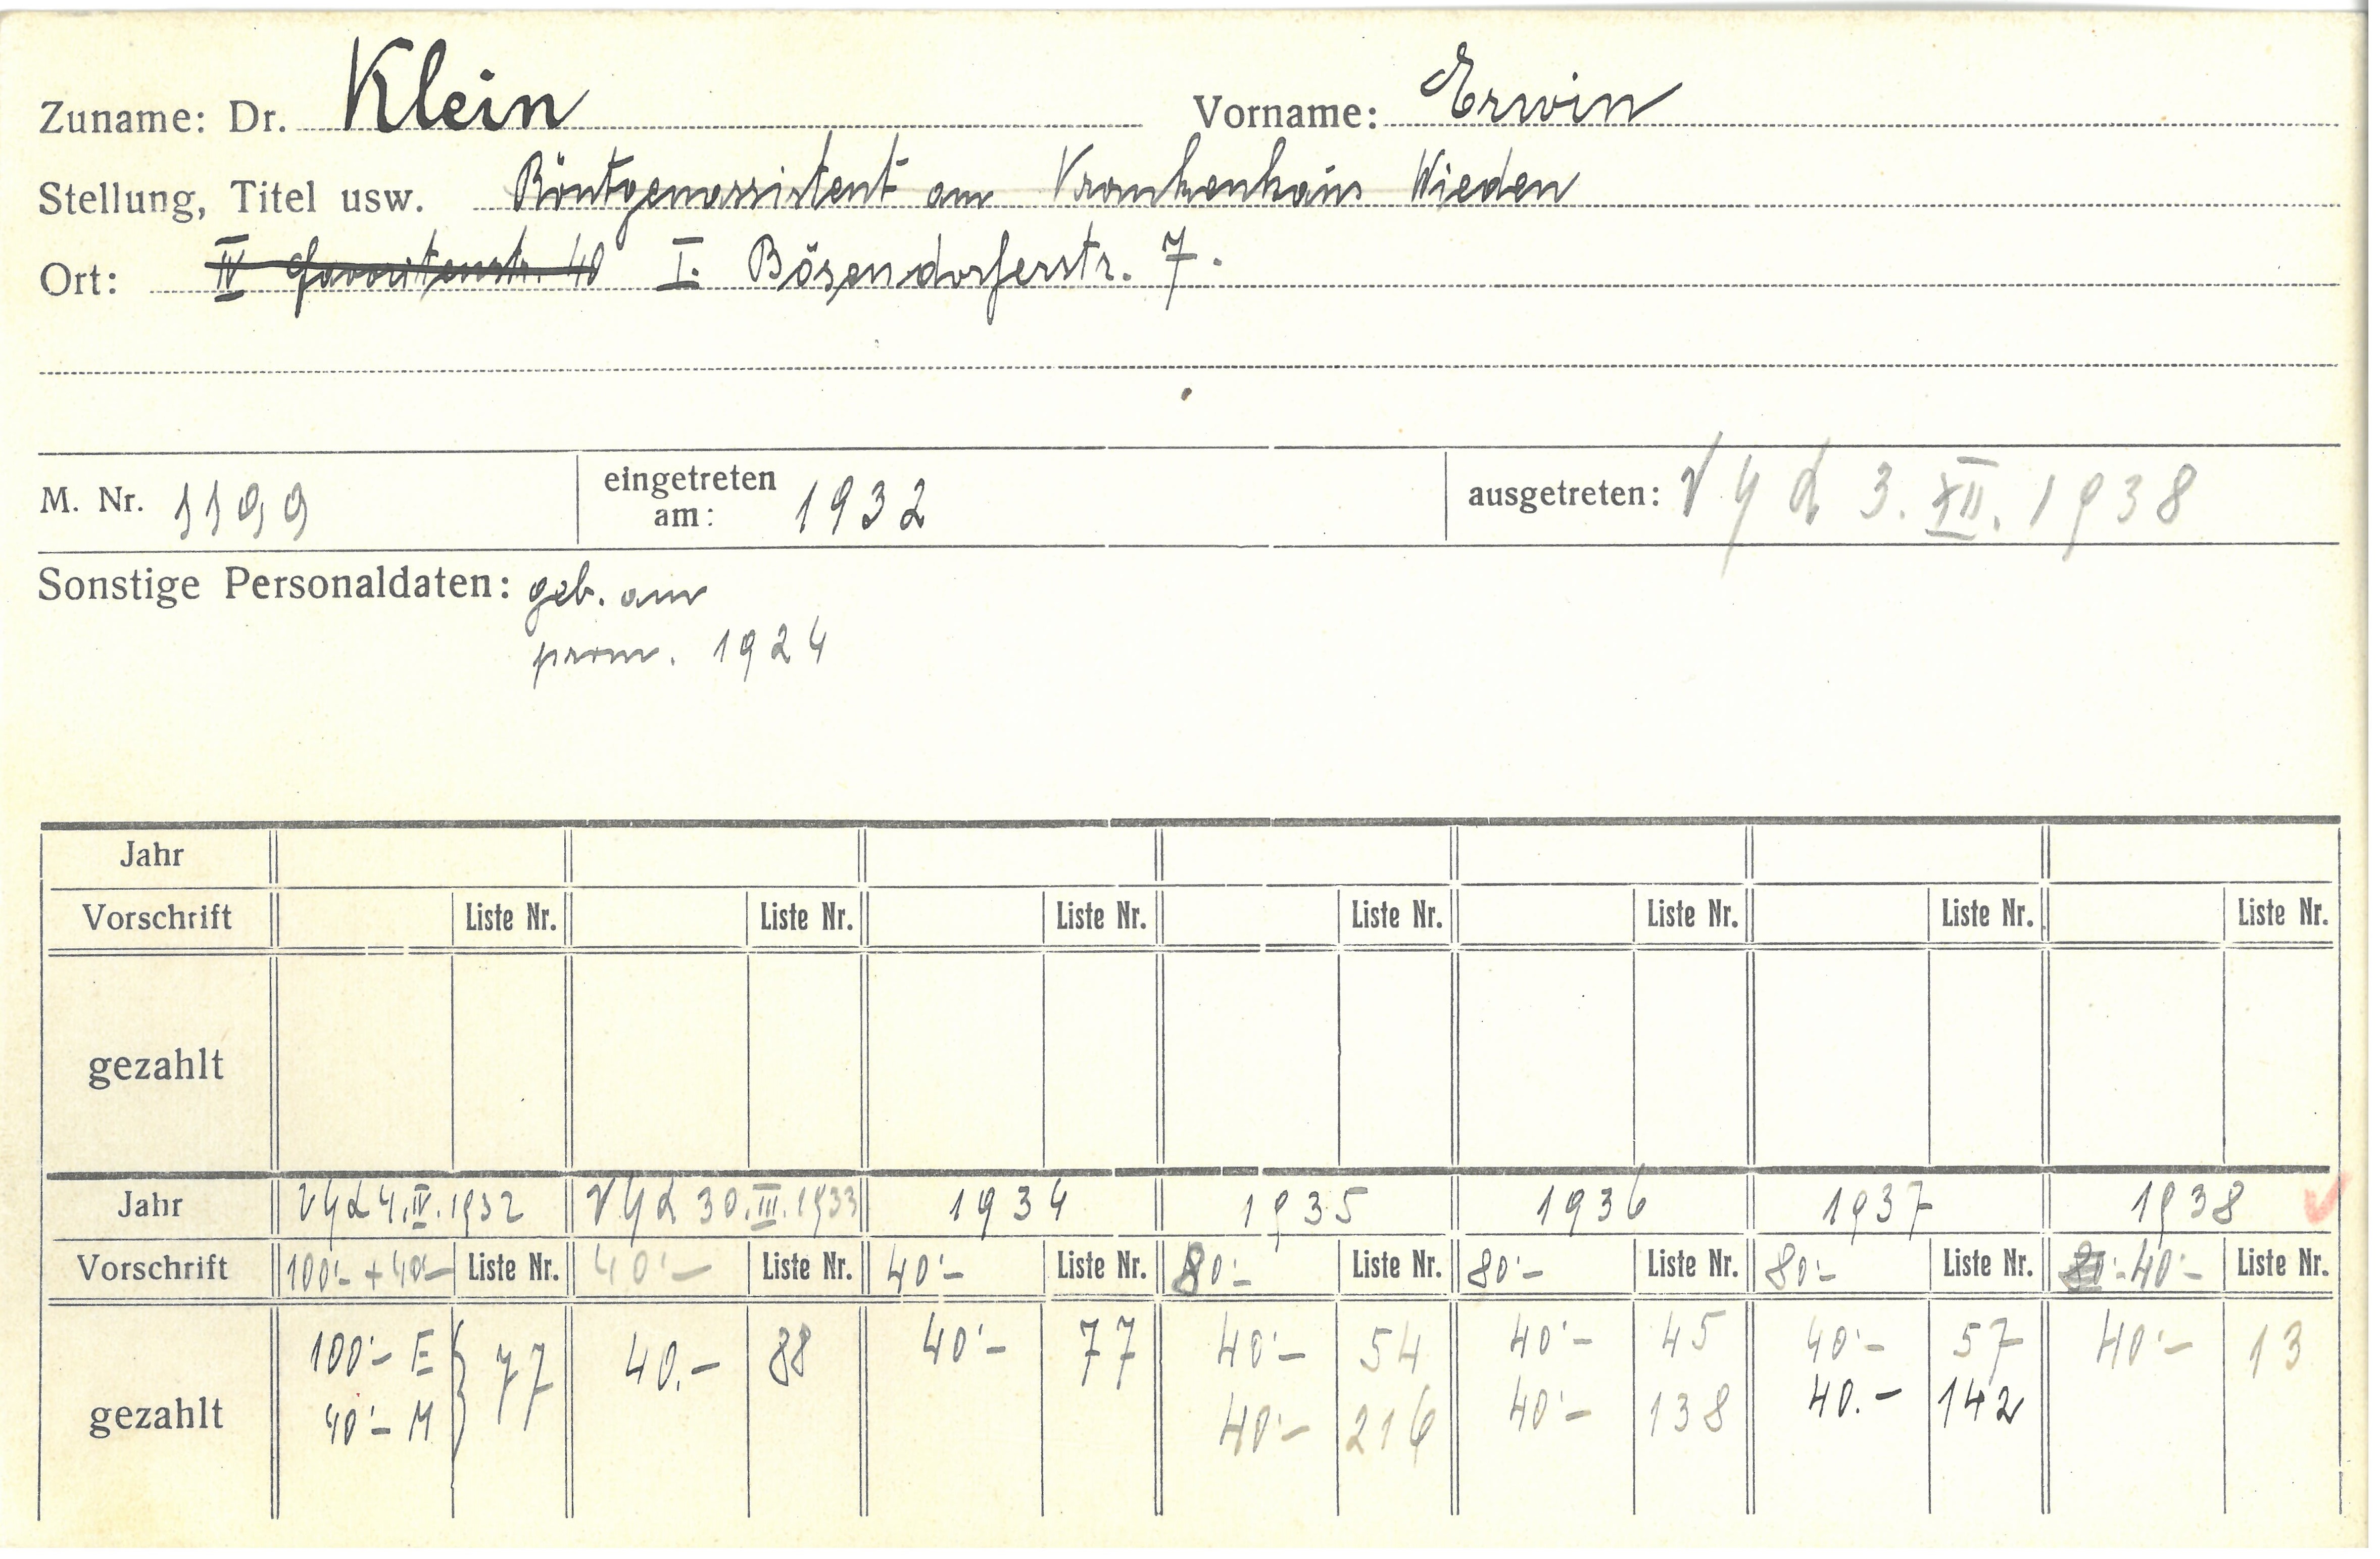 Zuname: Dr. Klein Vorname: Erwin
Stellung, Titel usw. Röntgenassistent am Krankenhaus Wieden
Ort: IV Favoritenstr. 40 I. Bösendorferstr. 7.
M. Nr. 1199 eingetreten am: 1932 ausgetreten: 3. XII. 1938
Sonstige Personaldaten: geb. am
prom. 1924
Jahr
Vorschrift Liste Nr. Liste Nr. Liste Nr. Liste Nr. Liste Nr. Liste Nr. Liste Nr.
gezahlt
Jahr 4. IV. 1932 30. III. 1933 1934 1935 1936 1937 1938
Vorschrift 100·- + 40·- Liste Nr. 40·- Liste Nr. 40·- Liste Nr. 80·- Liste Nr. 80·- Liste Nr. 80·- Liste Nr. 80·- 40·- Liste Nr.
gezahlt 100·- E 77 40.- 88 40·- 77 40·- 54 40·- 45 40·- 57 40·- 13
40·- M 40·- 216 40·- 138 40.- 142